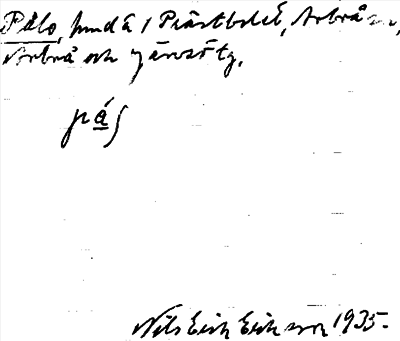 Pålo, hmd å 1 Prästbolet, Arbrå sn,
Arbrå och Järvsö tg.
pås
Nils Erik Eriksson 1935.